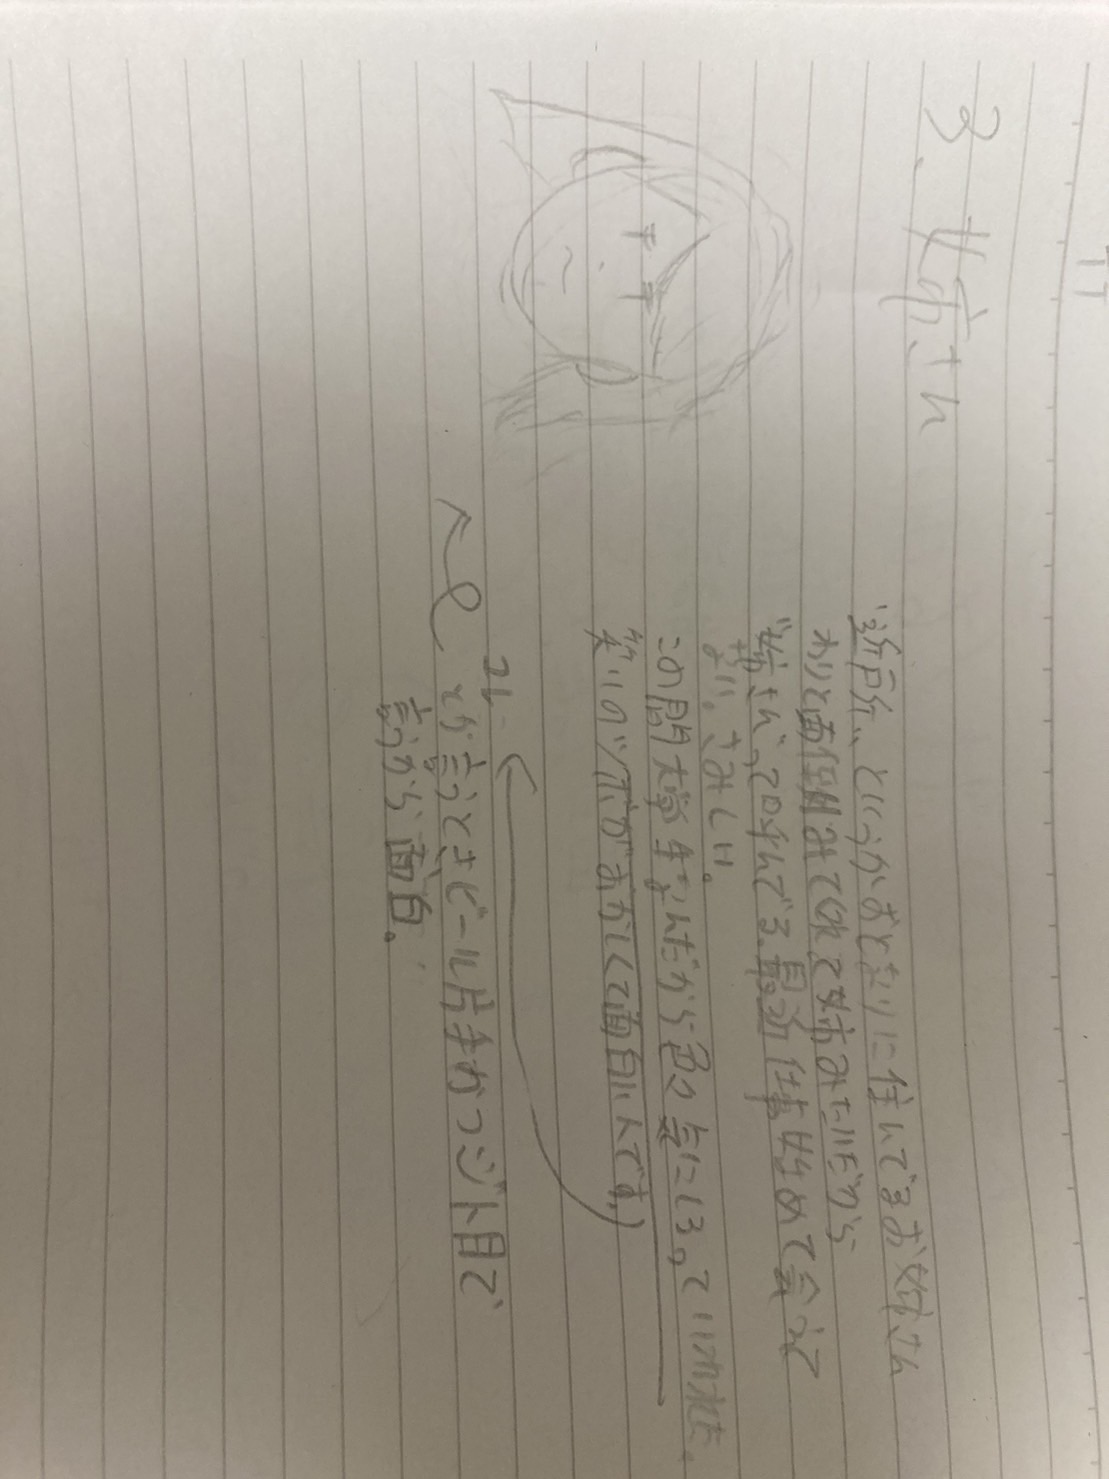 3. 姉さん
近所、というかおとなりに住んでるお姉さん
わりと面倒みてくれて姉みたいだから
"姉さん"って呼んでる。最近仕事始めて会えて
ない。さみしい。
この間大学生なんだから色々気にしろ、って言われた。
笑いのツボがおかしくて面白い人です)
これ
とか言うときビール片手かつジト目で
言うから面白。